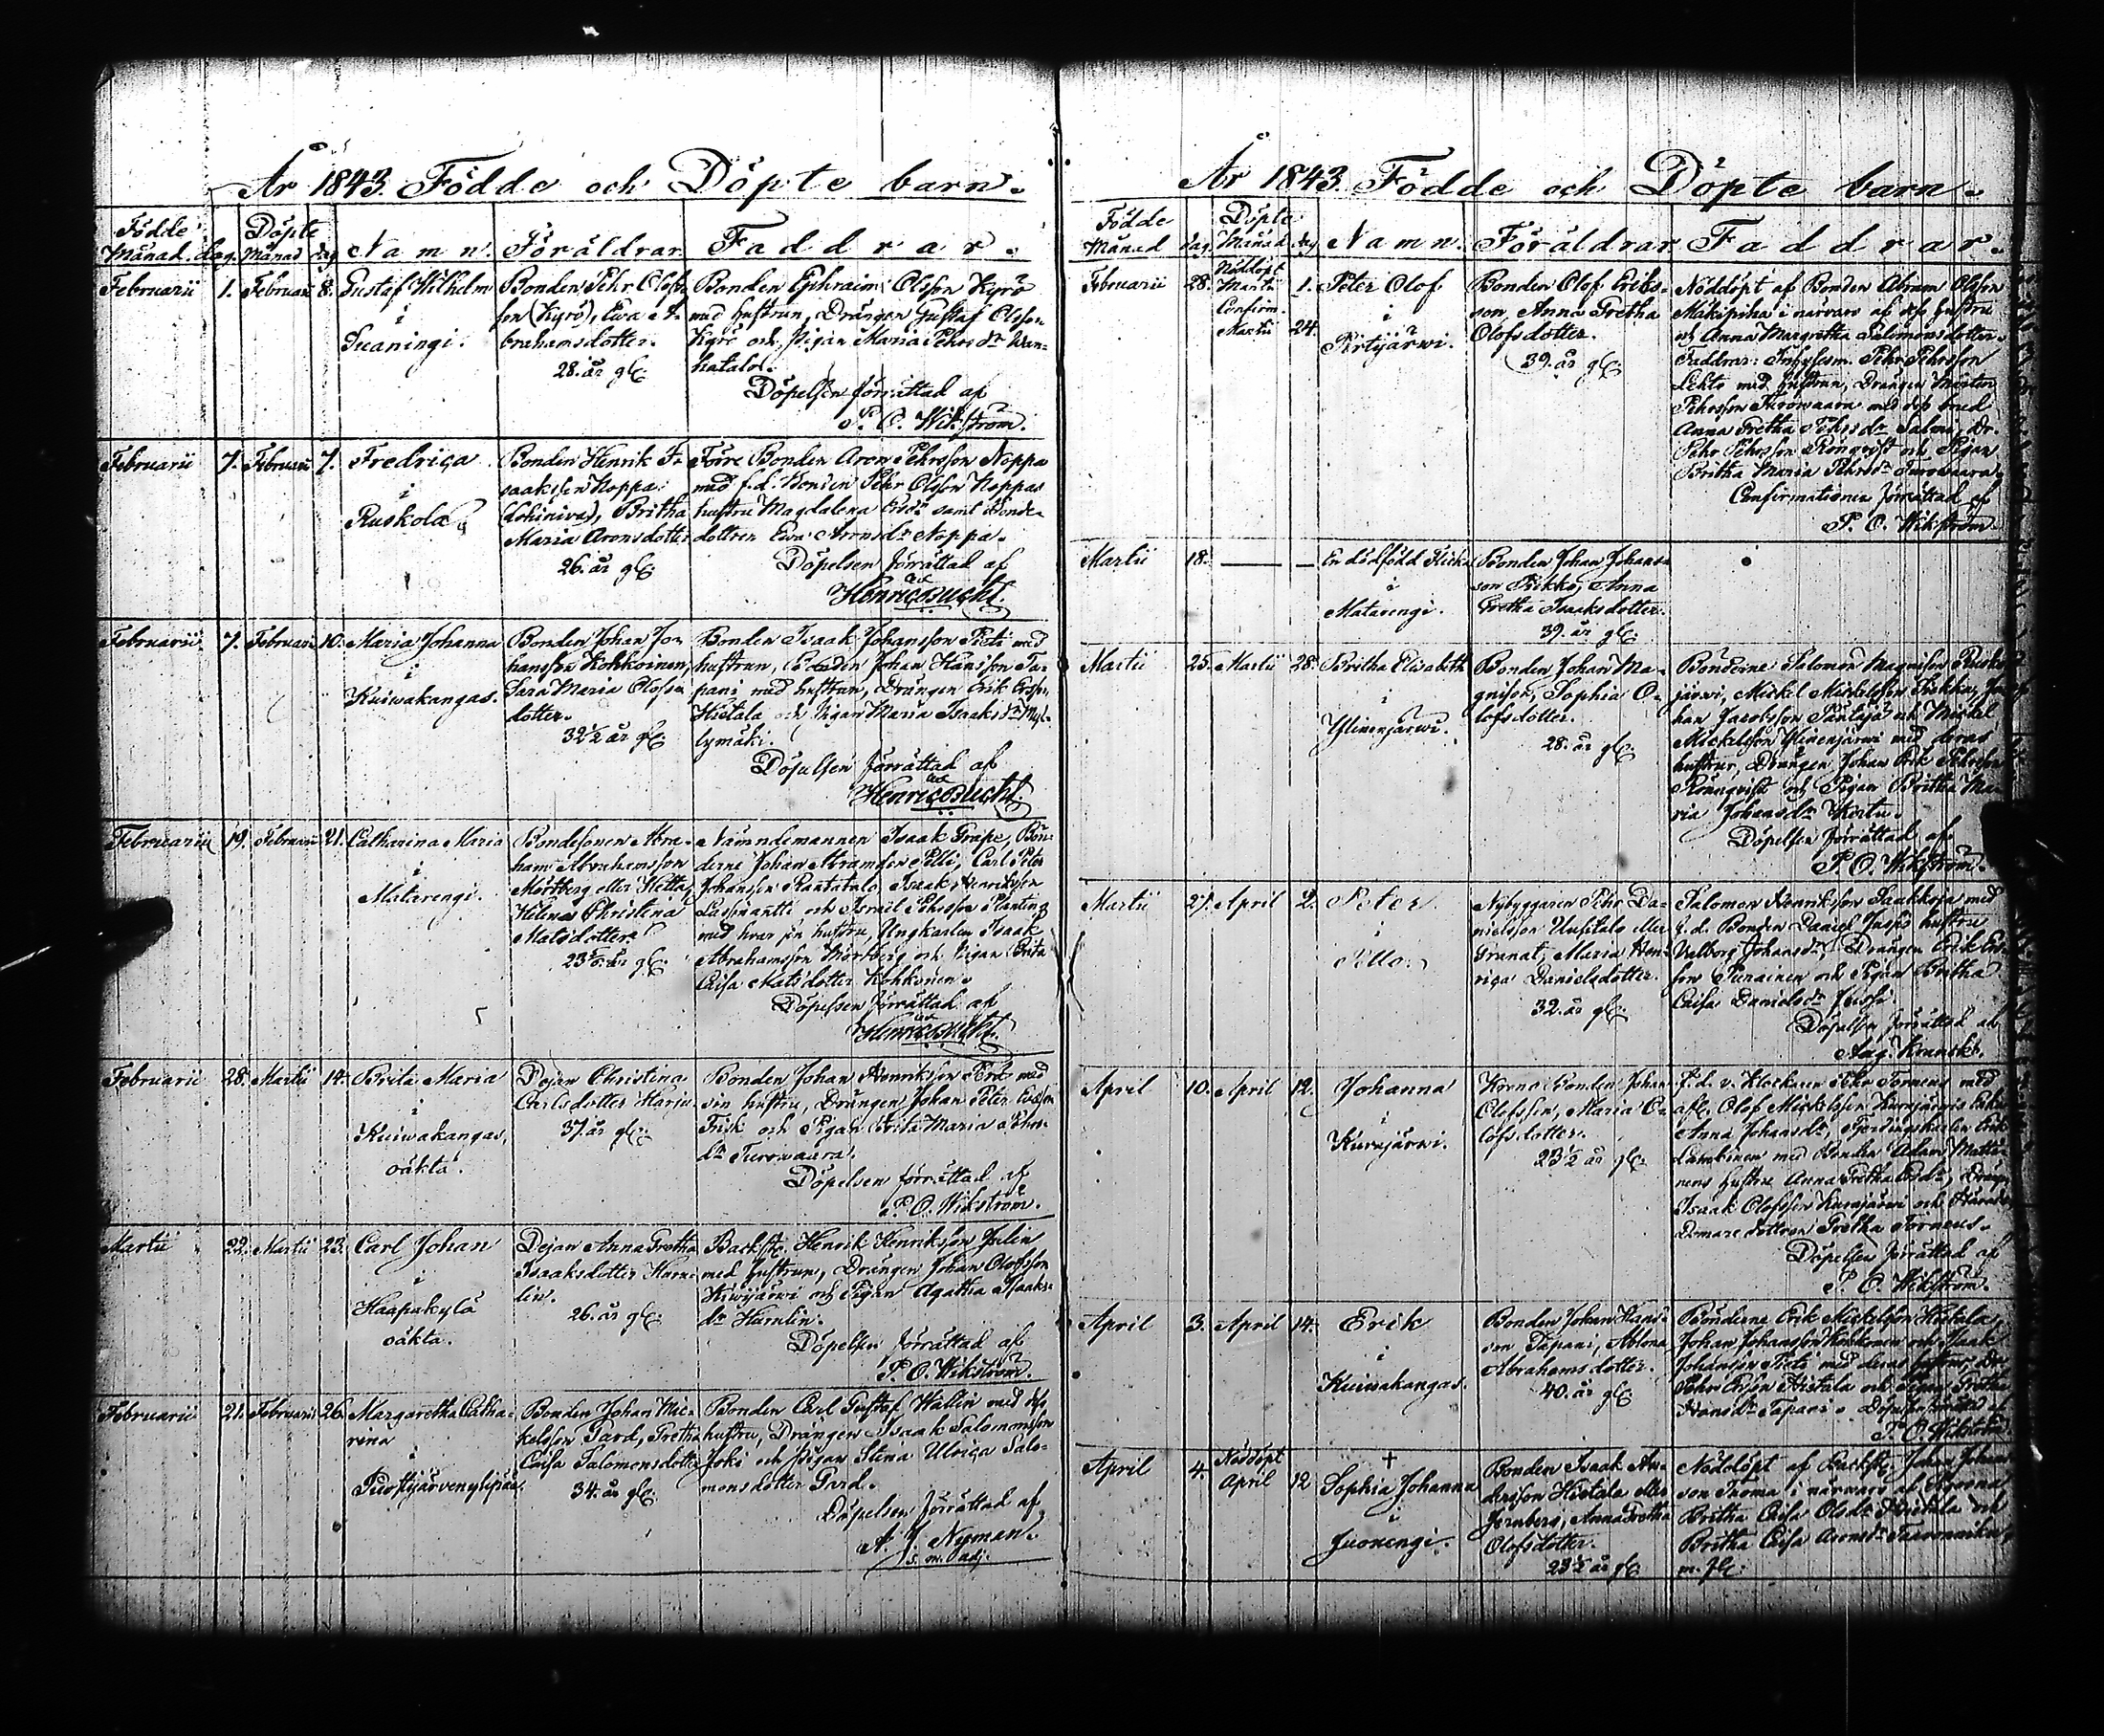 År 1843. Födde och Döpte barn.
Födde Månad. dag. Döpte Månad dag Namn. Föräldrar Faddrar.
Februarii 1. Februarii 8. Gustaf Wilhelm
i
Suaningi.
Bonden Pehr Olofs-
son (Kyrö), Ewa A-
brahamsdotter.
28. år gl.
Bonden Ephraim Olsson Kyrö
med hustrun, Drängen Gustaf Olsson
Kyrö och Pigan Maria Pehrs dr
hatalo.
Döpelsen förrättad af
P. O. Wikström.
Februarii 7. Februarii 7. Fredrica
i
Ruskola
Bonden Henrik I-
saaksson Noppa
(Lohiniva), Britha
Maria Aronsdotter
26. år gl.
Förre Bonden Aron Pehrsson Noppa
med f.d. Bonden Pehr Olsson Noppas
hustru Magdalena Ersdr samt Bonde-
dottren Ewa Aronsdr Noppa.
Döpelsen förrättad af
Henric Bucht.
Februarii 7. Februarii 10. Maria Johanna
i
Kuiwakangas.
Bonden Johan Jo-
hansson Kohkoinen,
Sara Maria Olofs-
dotter.
32 1/2 år gl.
Bonden Isaak Johansson Pieti med
hustrun, Bonden Johan Hansson Ta-
pani med hustrun, Drängen Erik Ersson
Hietala och Pigan Maria Isaaksdr Myl-
lymäki.
Döpelsen förrättad af
Henric Bucht.
Februarii 19. Februarii 21. Catharina Maria
i
Matarengi.
Bondesonen Abra-
ham Abrahamsson
Mörtberg eller Hetta,
Helena Christina
Matsdotter.
år gl.
Nämndemannen Isaak Grape, Bön-
derne Johan Abramsson Pelli, Carl Peter
Johansson Rantatalo, Isaak Henriksson
Lassinantti och Israel Pehrsson Planting
med hvar sin hustru, Ungkarlen Isaak
Abrahamsson Mörtberg och Pigan Brita
Caisa Matsdotter Kohkoinen.
Döpelsen förrättad af
Henric Bucht.
Februarii 28. Martii 14. Brita Maria
i
Kuiwakangas,
oäkta.
Dejan Christina
Carlsdotter Harju
37. år gl.
Bonden Johan Henriksson Fisk med
sin hustru, Drängen Johan Peter Ersson
Fisk och Pigan Brita Maria Pehrs-
dr Turowaara.
Döpelsen förrättad af
P. O. Wikström.
Martii 22. Martii 23. Carl Johan
i
Haapakylä
oäkta.
Dejan Anna Gretha
Isaaksdotter Hum-
lin.
26. år gl.
Backst. Henrik Henriksson Julin
med hustrun, Drängen Johan Olofsson
Kiwijärwi och Pigan Agatha Isaaks-
dr Humlin.
Döpelsen förrättad af
P. O. Wikström.
Februarii 21. Februarii 26. Margaretha Catha-
rina
i
Bonden Johan Mic-
kelsson Pard, Gretha
Caisa Salomonsdotter
34. år gl.
Bonden Carl Gustaf Wallin med dess
hustru, Drängen Isaak Salomonsson
Joki och Pigan Stina Ulrica Salo-
monsdotter Pard.
Döpelsen förrättad af
A. J. Nyman.
s. m. adj.
År 1843. Födde och Döpte barn.
Födde Månad dag. Döpte Månad dag Namn. Föräldrar Faddrar.
Februarii 28. Nöddöpt Martii 1. Confirm. Martii 24. Peter Olof
i
Pirtijärwi.
Bonden Olof Eriks-
son, Anna Gretha
Olofsdotter.
39. år gl.
Nöddöpt af Bonden Abram Olsson
Mäkipiha i närvaro af dess hustru
och Anna Margretha Salomonsdotter.
Faddrar: Inhyses m. Pehr Pehrsson
Lehto med hustrun, Drängen Morten
Pehrsson Turowaara med dess brud
Anna Gretha Pehrsdr Salmi, Dr.
Pehr Pehrsson Rönqvist och Pigan
Britha Maria Pehrsdr Turowaara.
Confirmationen förrättad af
P. O. Wikström.
Martii 18. En dödfödd flicka
i
Matarengi.
Bonden Johan Johans-
son Rikko, Anna
Gretha Isaaksdotter.
39. år gl.
Martii 25. Martii 28. Britha Elisabeth
i
Ylinenjärwi.
Bonden Johan Ma-
gnisson, Sophia O-
lofsdotter.
28. år gl.
Bönderne Salomon Magnisson
järwi, Mickel Mickelsson
han Jacobsson och Mickel
Mickelsson Ylinenjärwi med deras
hustrur, Drängen Johan Erik Pehrsson
Rönnqvist och Pigan Britha Ma-
ria Johansdr
Döpelsen förrättad af
P. O. Wikström.
Martii 27. April 2. Peter
i
Pello.
Nybyggaren Pehr Da-
nielsson Uusitalo eller
Granat, Maria Hen-
rica Danielsdotter.
32. år gl.
Salomon Henriksson med
f. d. Bonden Daniel Jusis hustru
Walborg Johansdr, Drängen Erik Ers-
son Punainen och Pigan Britha
Caisa Danielsdr Jussi.
Döpelsen förrättad af
Aug.
April 10. April 12. Johanna
i
Kurujärwi.
Krono Bonden Johan
Olofsson, Maria O-
lofsdotter.
23 1/2 år gl.
f. d. v. Klockaren Pehr Torneus med
Olof Mickelsson
Anna Johansdr, Fjerdingskarlen Erik
med Bonden Adam
nens hustru Anna Gretha Ersdr, Dräng
Isaak Olofsson Kurujärwi och Härads-
Domare dottren Gretha Torneus.
Döpelsen förrättad af
P. O. Wikström.
April 3. April 14. Erik
i
Kuiwakangas.
Bonden Johan Hans-
son Tapani, Ablona
Abrahamsdotter.
40. år gl.
Bönderne Erik Mickelsson Hietala,
Johan Johansson Kohkoinen och Isaak
Johansson Pieti med deras hustrur, Dr.
Pehr Ersson Hietala och Pigan Gretha
Hansdr Tapani. Döpelsen förrättad af
P. O. Wikström.
April 4. Nöddöpt April 12 +
Sophia Johanna
i
Juonengi.
Bonden Isaak An-
dersson Hietala eller
Jernberg, Anna Gretha
Olofsdotter.
23 1/2 år gl.
Nöddöpt af Backst. Johan Johans-
son i närvaro af
Britha Caisa Olsdr Hietala och
Britha Caisa Aronsdr
m. fl.